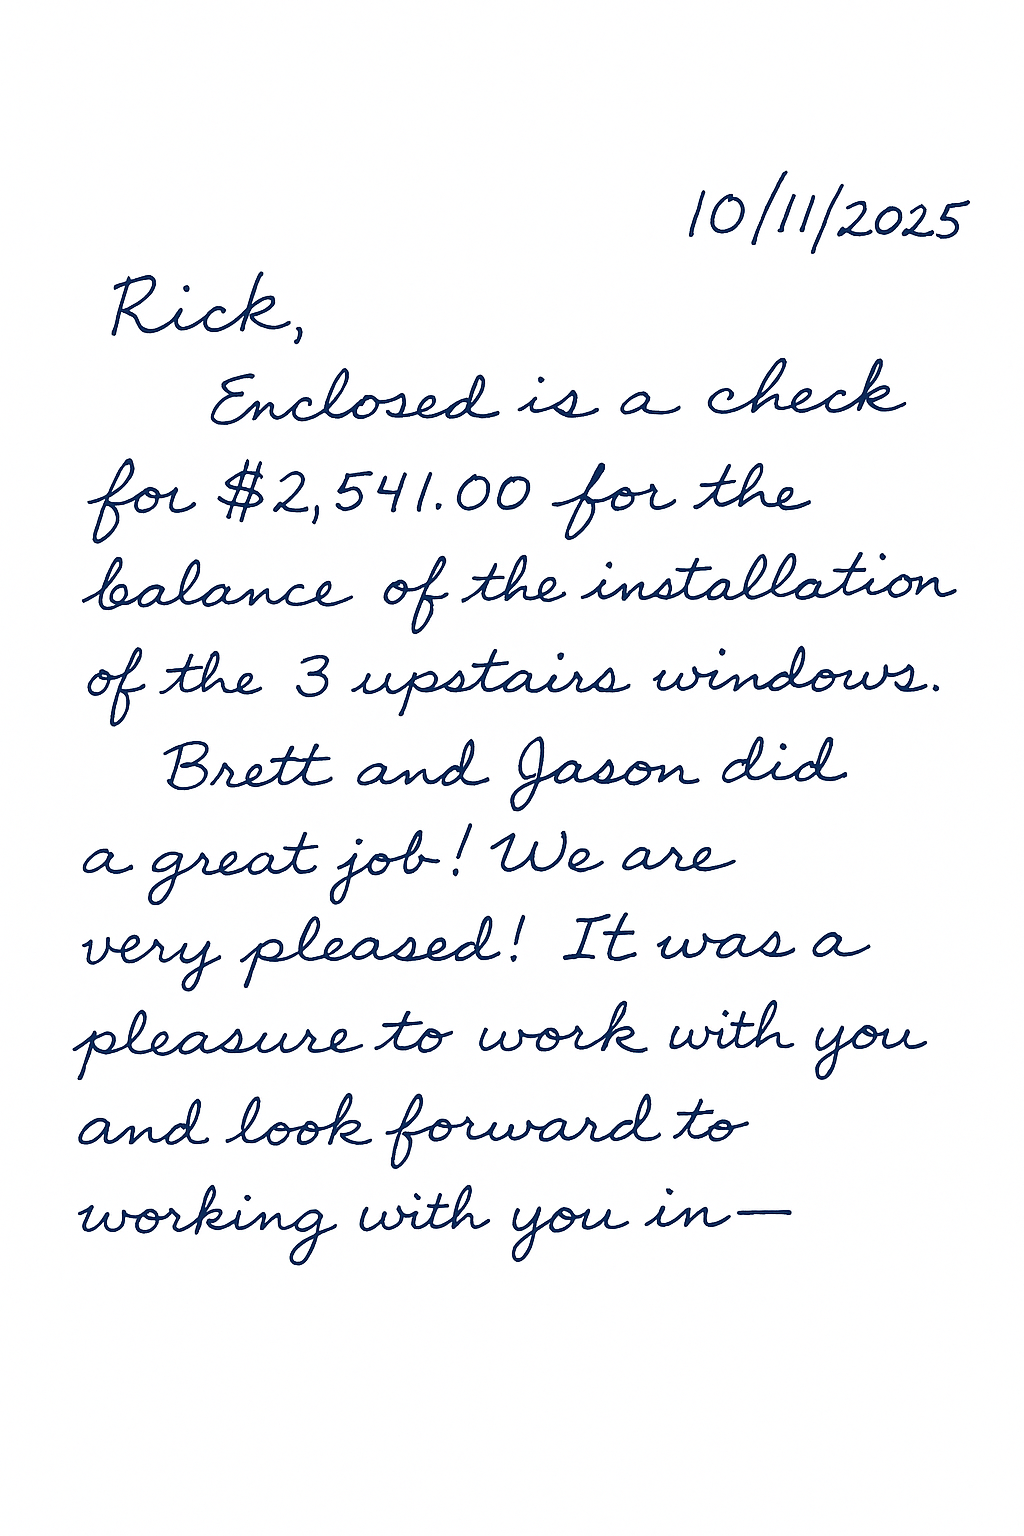 10/11/2025
Rick,
Enclosed is a check
for $2,541.00 for the
balance of the installation
of the 3 upstairs windows.
Brett and Jason did
a great job! We are
very pleased! It was a
pleasure to work with you
and look forward to
working with you in—